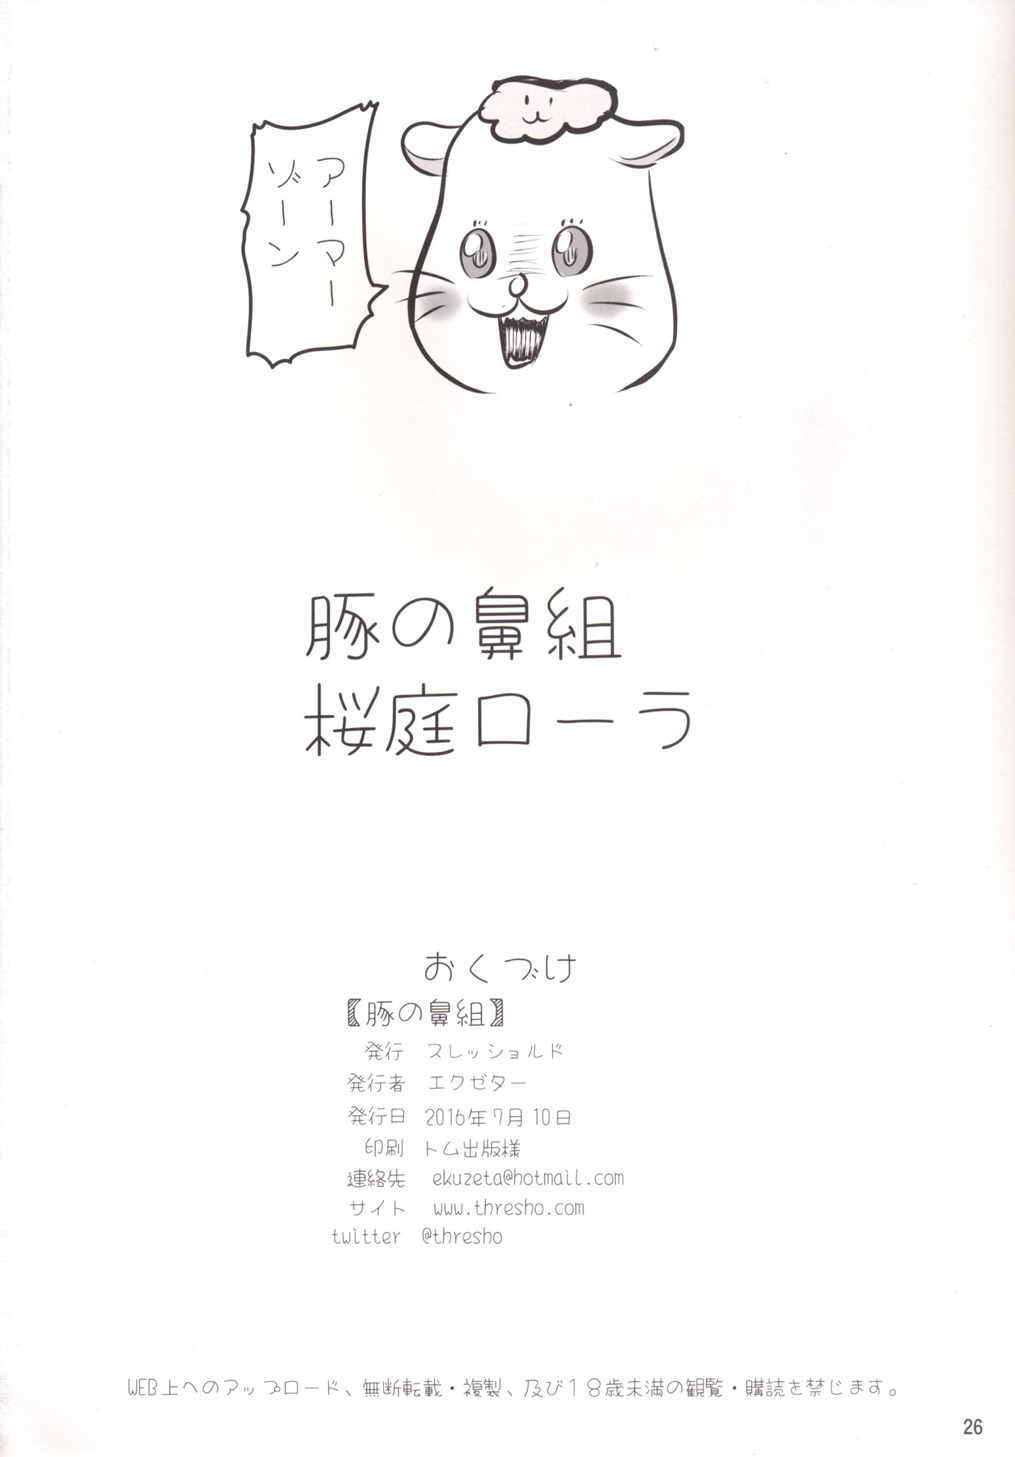 アーマー
ゾーン
豚の鼻組
桜庭ローラ
おくづけ
【豚の鼻組】
発行 スレッショルド
発行者 エクゼター
発行日 2016年7月10日
印刷 トム出版様
連絡先 ekuzeta@hotmail.com
サイト www.thresho.com
twitter @thresho
WEB上へのアップロード、無断転載・複製、及び18歳未満の観覧・購読を禁じます。
26